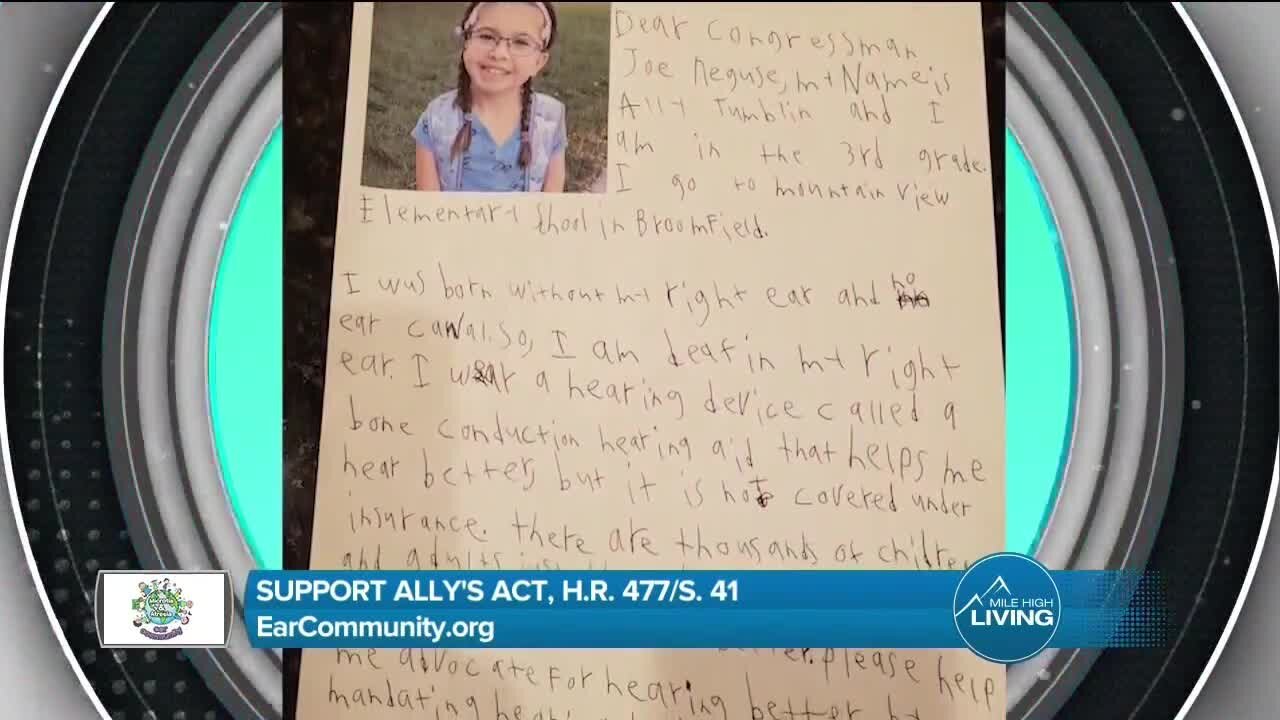 Dear Congressman
Joe Neguse, my Name is
Ally Tumblin and I
am in the 3rd grade.
I go to mountain view
Elementary Shool in BroomField.
I was born without my right ear and no
ear canal. So, I am deaf in my right
ear. I wear a hearing device called a
bone conduction hearing aid that helps me
hear better, but it is not covered under
insurance. there are thousands of children
and adults just
better. please help
me advocate For hearing better by
mandating
SUPPORT ALLY'S ACT, H.R. 477/S. 41
EarCommunity.org
Microtia
&
Atresia
EAR
COMMUNITY
MILE HIGH
LIVING